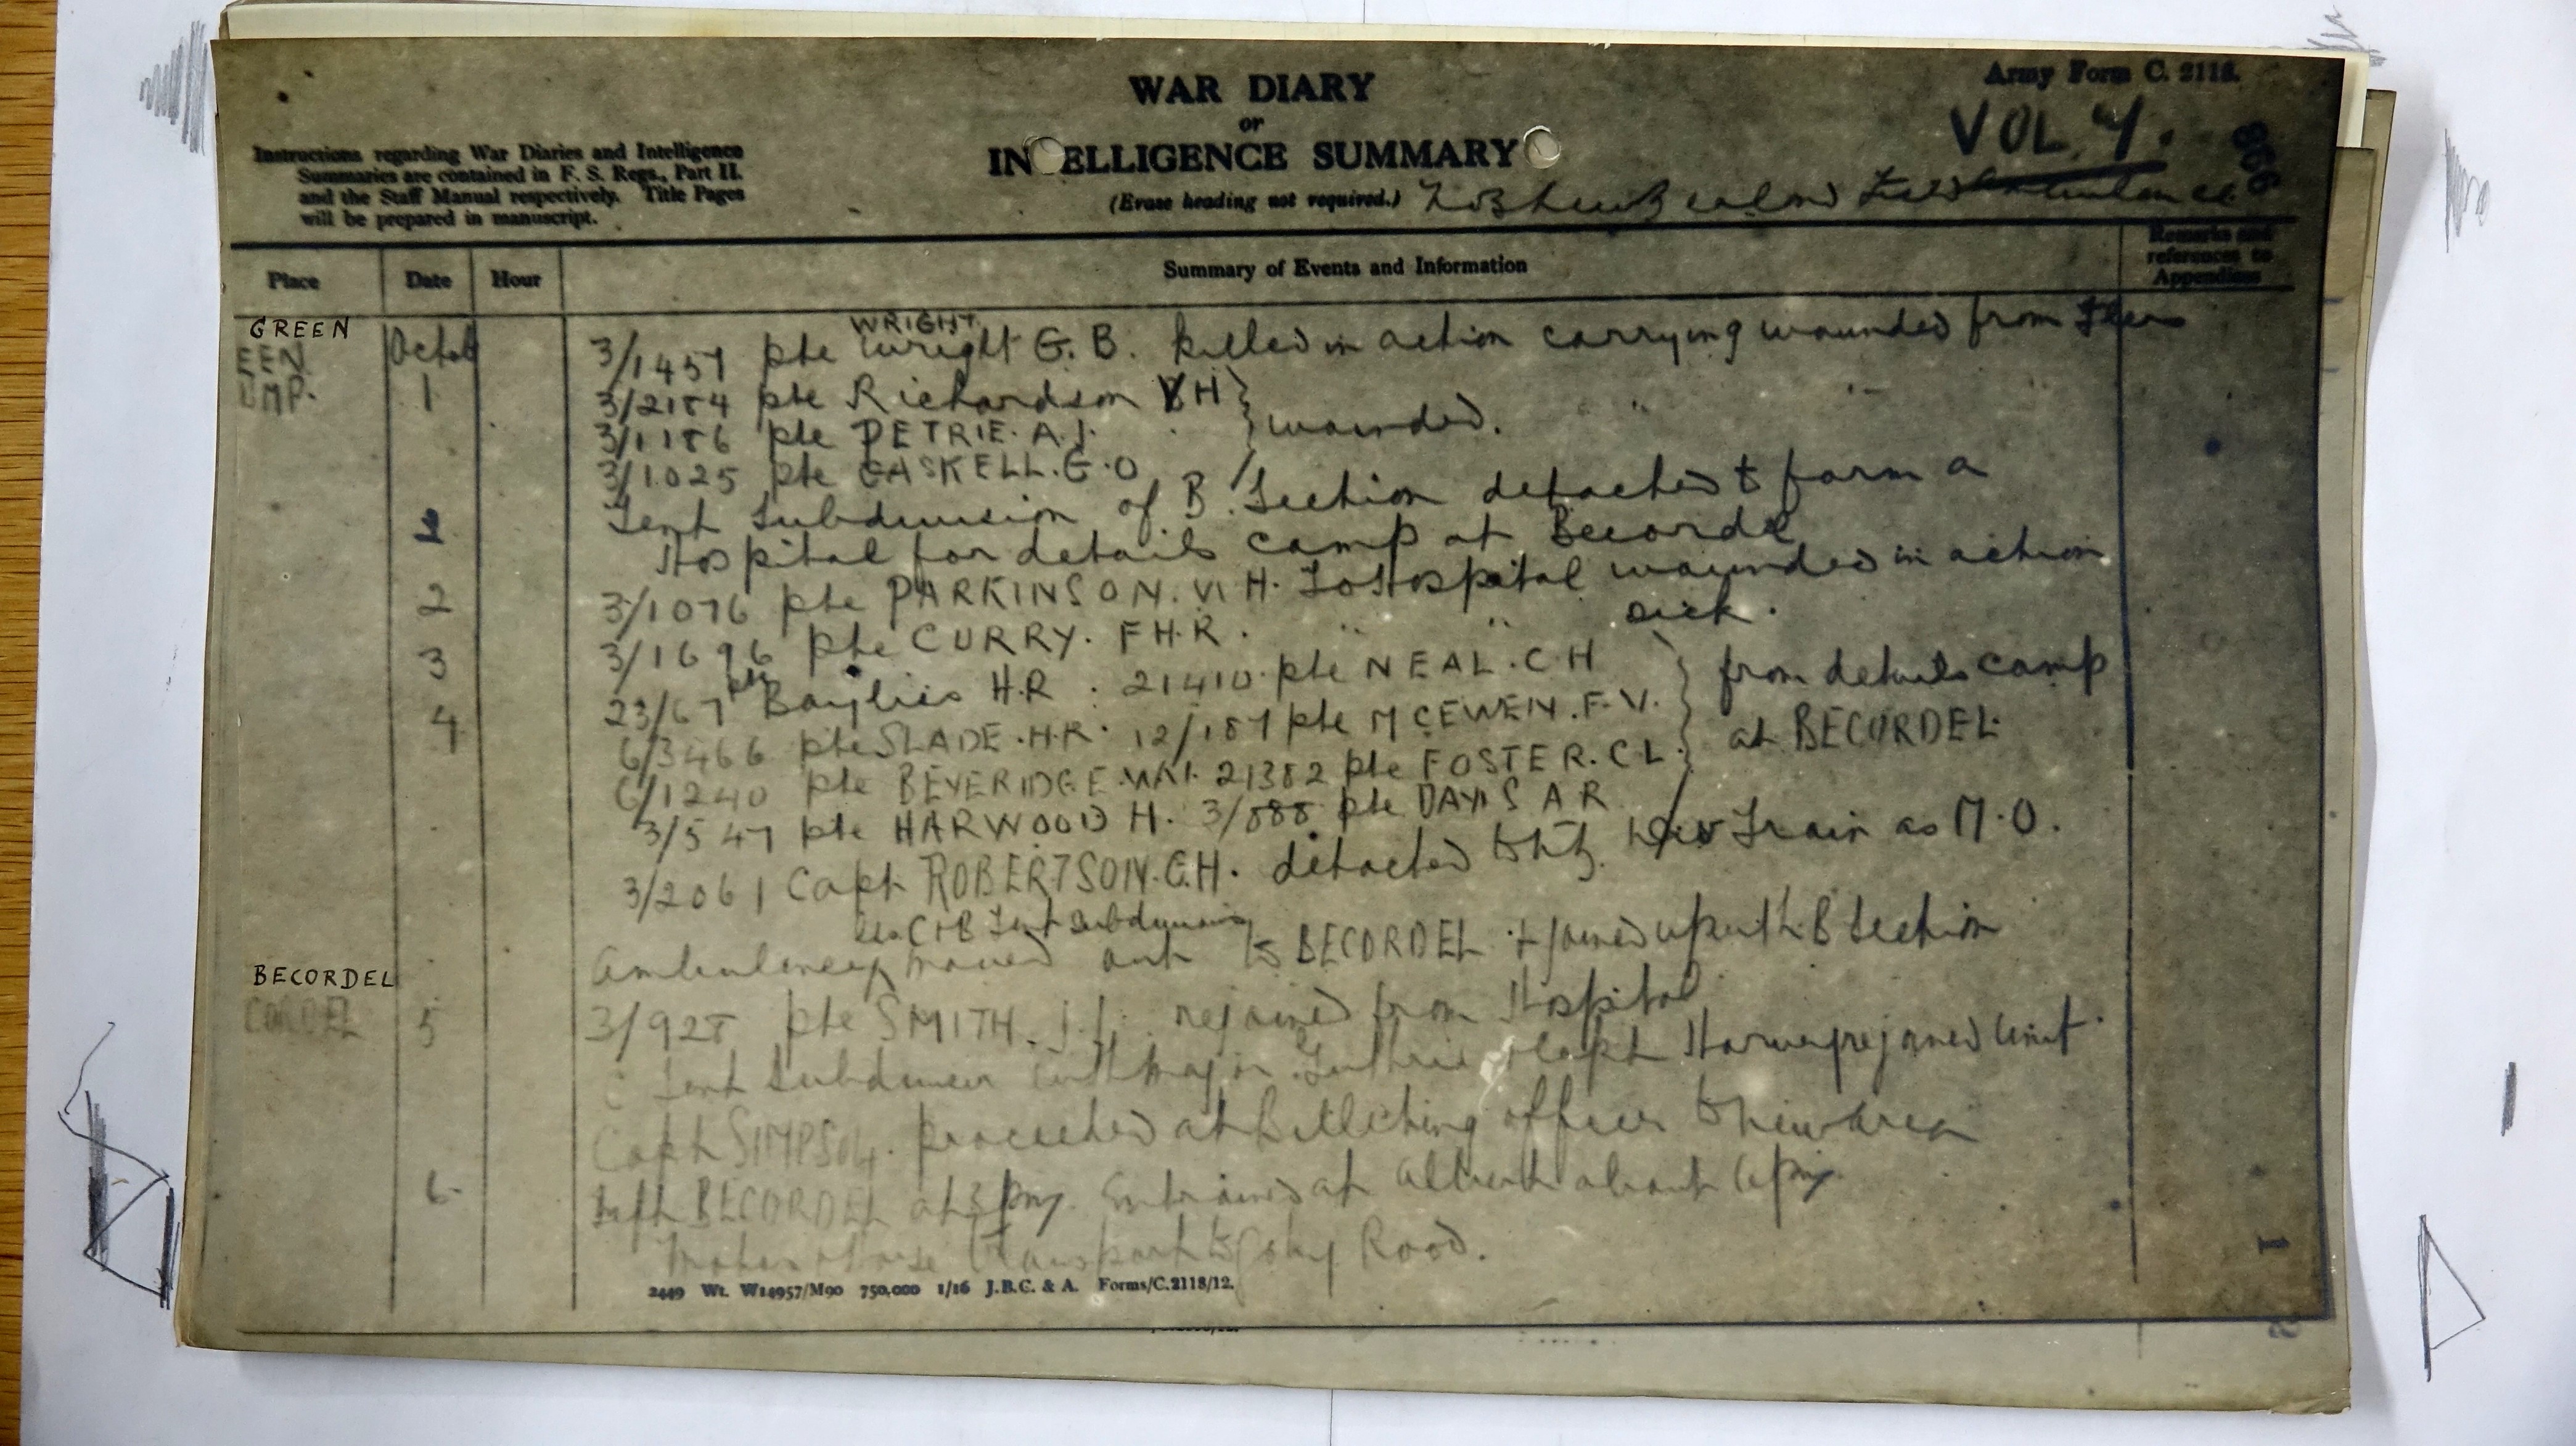 WAR DIARY
or
INTELLIGENCE SUMMARY
(Erase heading not required.)
Army Form C. 2118.
VOL. 4.
998
Instructions regarding War Diaries and Intelligence
Summaries are contained in F. S. Regs., Part II.
and the Staff Manual respectively. Title Pages
will be prepared in manuscript.
Place Date Hour Summary of Events and Information Remarks and references to Appendices
GREEN
EEN
UMP.
Octob
WRIGHT
3/1457 pte Wright G. B. killed in action carrying wounded from Flers
1 3/2184 pte Richardson H
3/1186 pte PETRIE. A. J. wounded. " "
3/1025 pte GASKELL. G. O
Tent Subdivision of B. Section detached to form a
Hospital for details camp at Becordel
2 3/1076 pte PARKINSON. W. H. To Hospital wounded in action
3 3/1696 pte CURRY. F H. R. " " sick.
4 23/67 pte Bayliss H.R. 21410 pte NEAL. C H from details camp
6/3466 pte SLADE. H. R. 12/187 pte MCEWEN. F. V. at BECORDEL
6/1240 pte BEVERIDGE. 21382 pte FOSTER. C. L.
3/547 pte HARWOOD H. 3/888 pte DAVIS A R
3/2061 Capt ROBERTSON. C. H. detached to Div Train as M. O.
less C & B Tent Subdivisions
Ambulance moved out to BECORDEL & joined up with B Section
BECORDEL
CORDEL
5 3/928 pte SMITH. J. J. rejoined from Hospital
C Tent Subdivision with Major Guthrie & Capt Harvey rejoined Unit.
Capt SIMPSON. proceeded as billeting officer to new area
6 Left BECORDEL at 3 pm. Entrained at Albert about 6 pm.
Motor & horse transport by Road.
2449 Wt. W14957/M90 750,000 1/16 J.B.C. & A. Forms/C.2118/12.
1